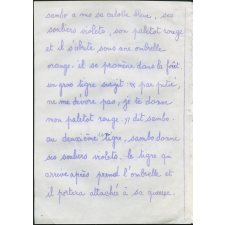 sambo a mis sa culotte bleue, ses
souliers violets, son paletot rouge
et il s'abrite sous une ombrelle
orange. il se promène dans la forêt.
un gros tigre surgit. « par pitié,
ne me dévore pas, je te donne
mon paletot rouge. » dit sambo.
au deuxième tigre, sambo donne
ses souliers violets. le tigre qui
arrive après prend l'ombrelle. et
il portera attachée à sa queue.